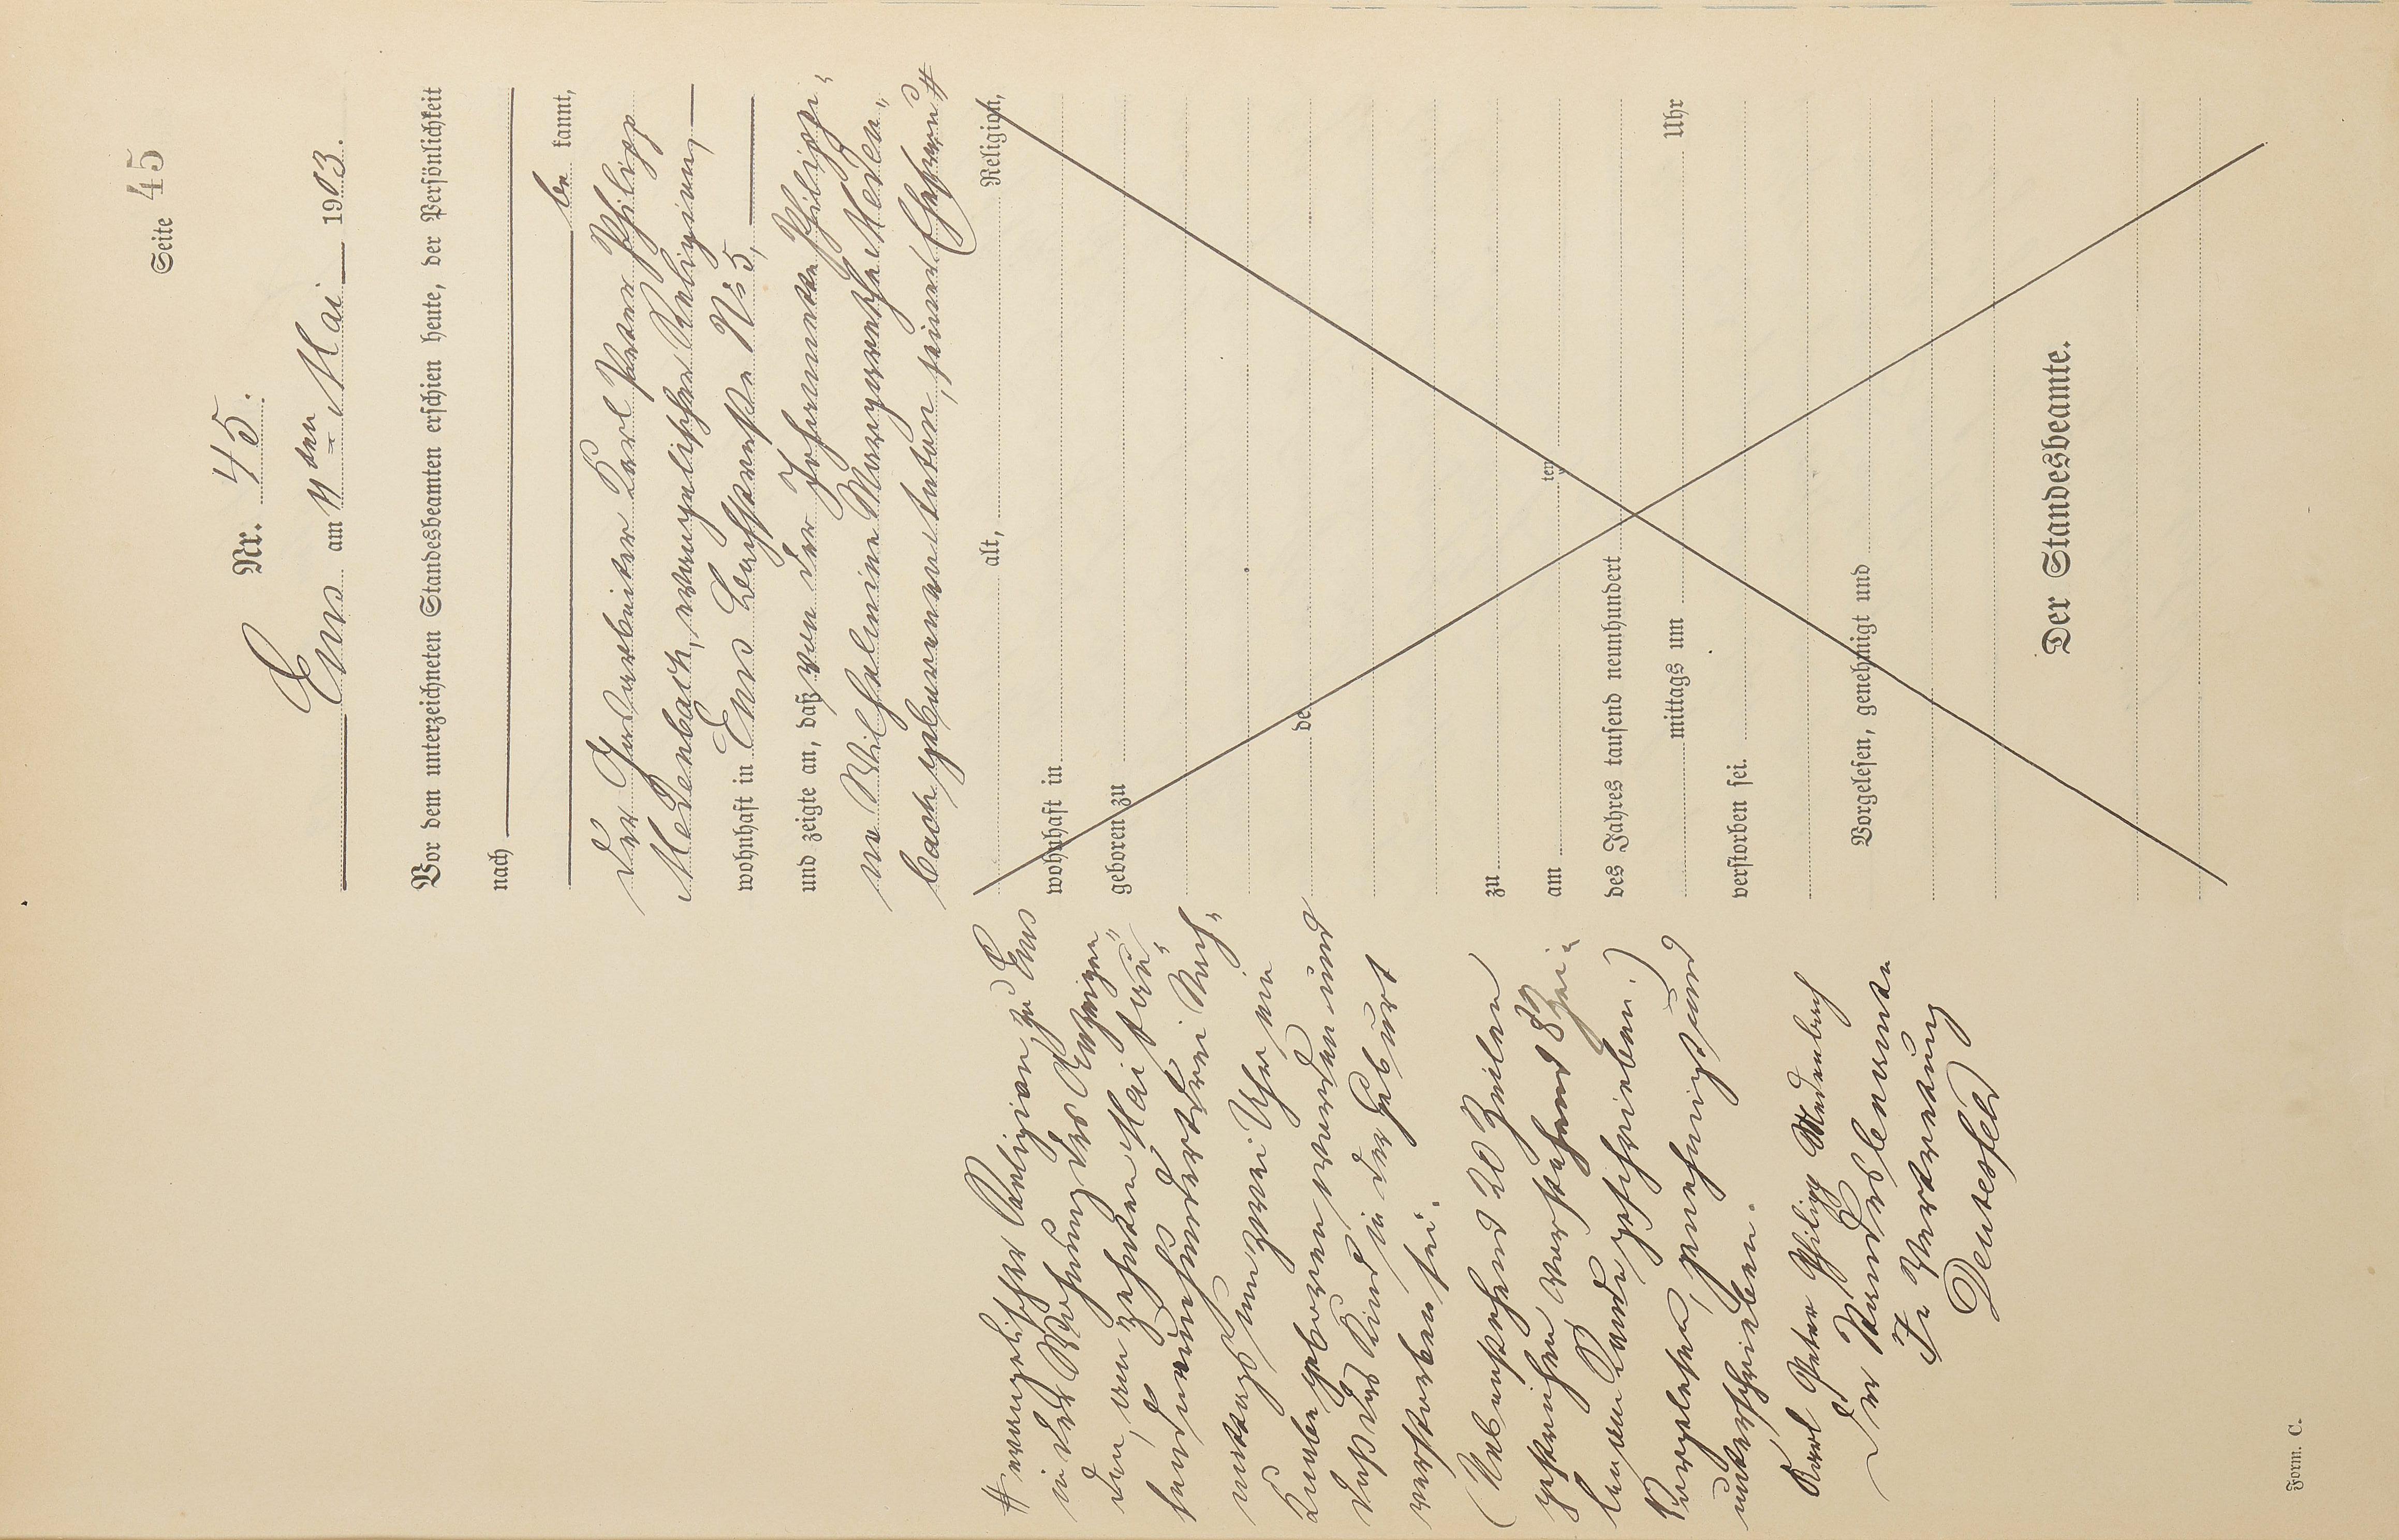 Seite 45
Nr. 45.
Ems am 11ten Mai 1903.
Vor dem unterzeichneten Standesbeamten erschien heute, der Persönlichkeit
nach
be kannt,
der Gasarbeiter Karl Peter Philipp
Medenbach, evangelischer Religion,
wohnhaft in Ems Bachstraße No 5,
und zeigte an, daß von der Johannette Philippi-
ne Wilhelmine Margarethe Meden-
bach geborenen, seiner Ehefrau #
alt, Religion,
wohnhaft in
geboren zu
de
zu
am ten
des Jahres tausend neunhundert
mittags um Uhr
verstorben sei.
Vorgelesen, genehmigt und
Der Standesbeamte.
# evangelischer Religion, zu Ems
in der Wohnung des Anzeigen-
den, am zehnten Mai tau-
send neunhundertdrei Nach-
mittags um zwei Uhr ein
Knabe geboren worden und
daß das Kind in der Geburt
verstorben sei.
(Nebenstehend 20 Zeilen
gestrichen, vorstehend 8 Zei-
len am Rande geschrieben.)
Vorgelesen, genehmigt und
unterschrieben.
Karl Peter Philipp Medenbach
Der Standesbeamte
In Vertretung
Form. C.